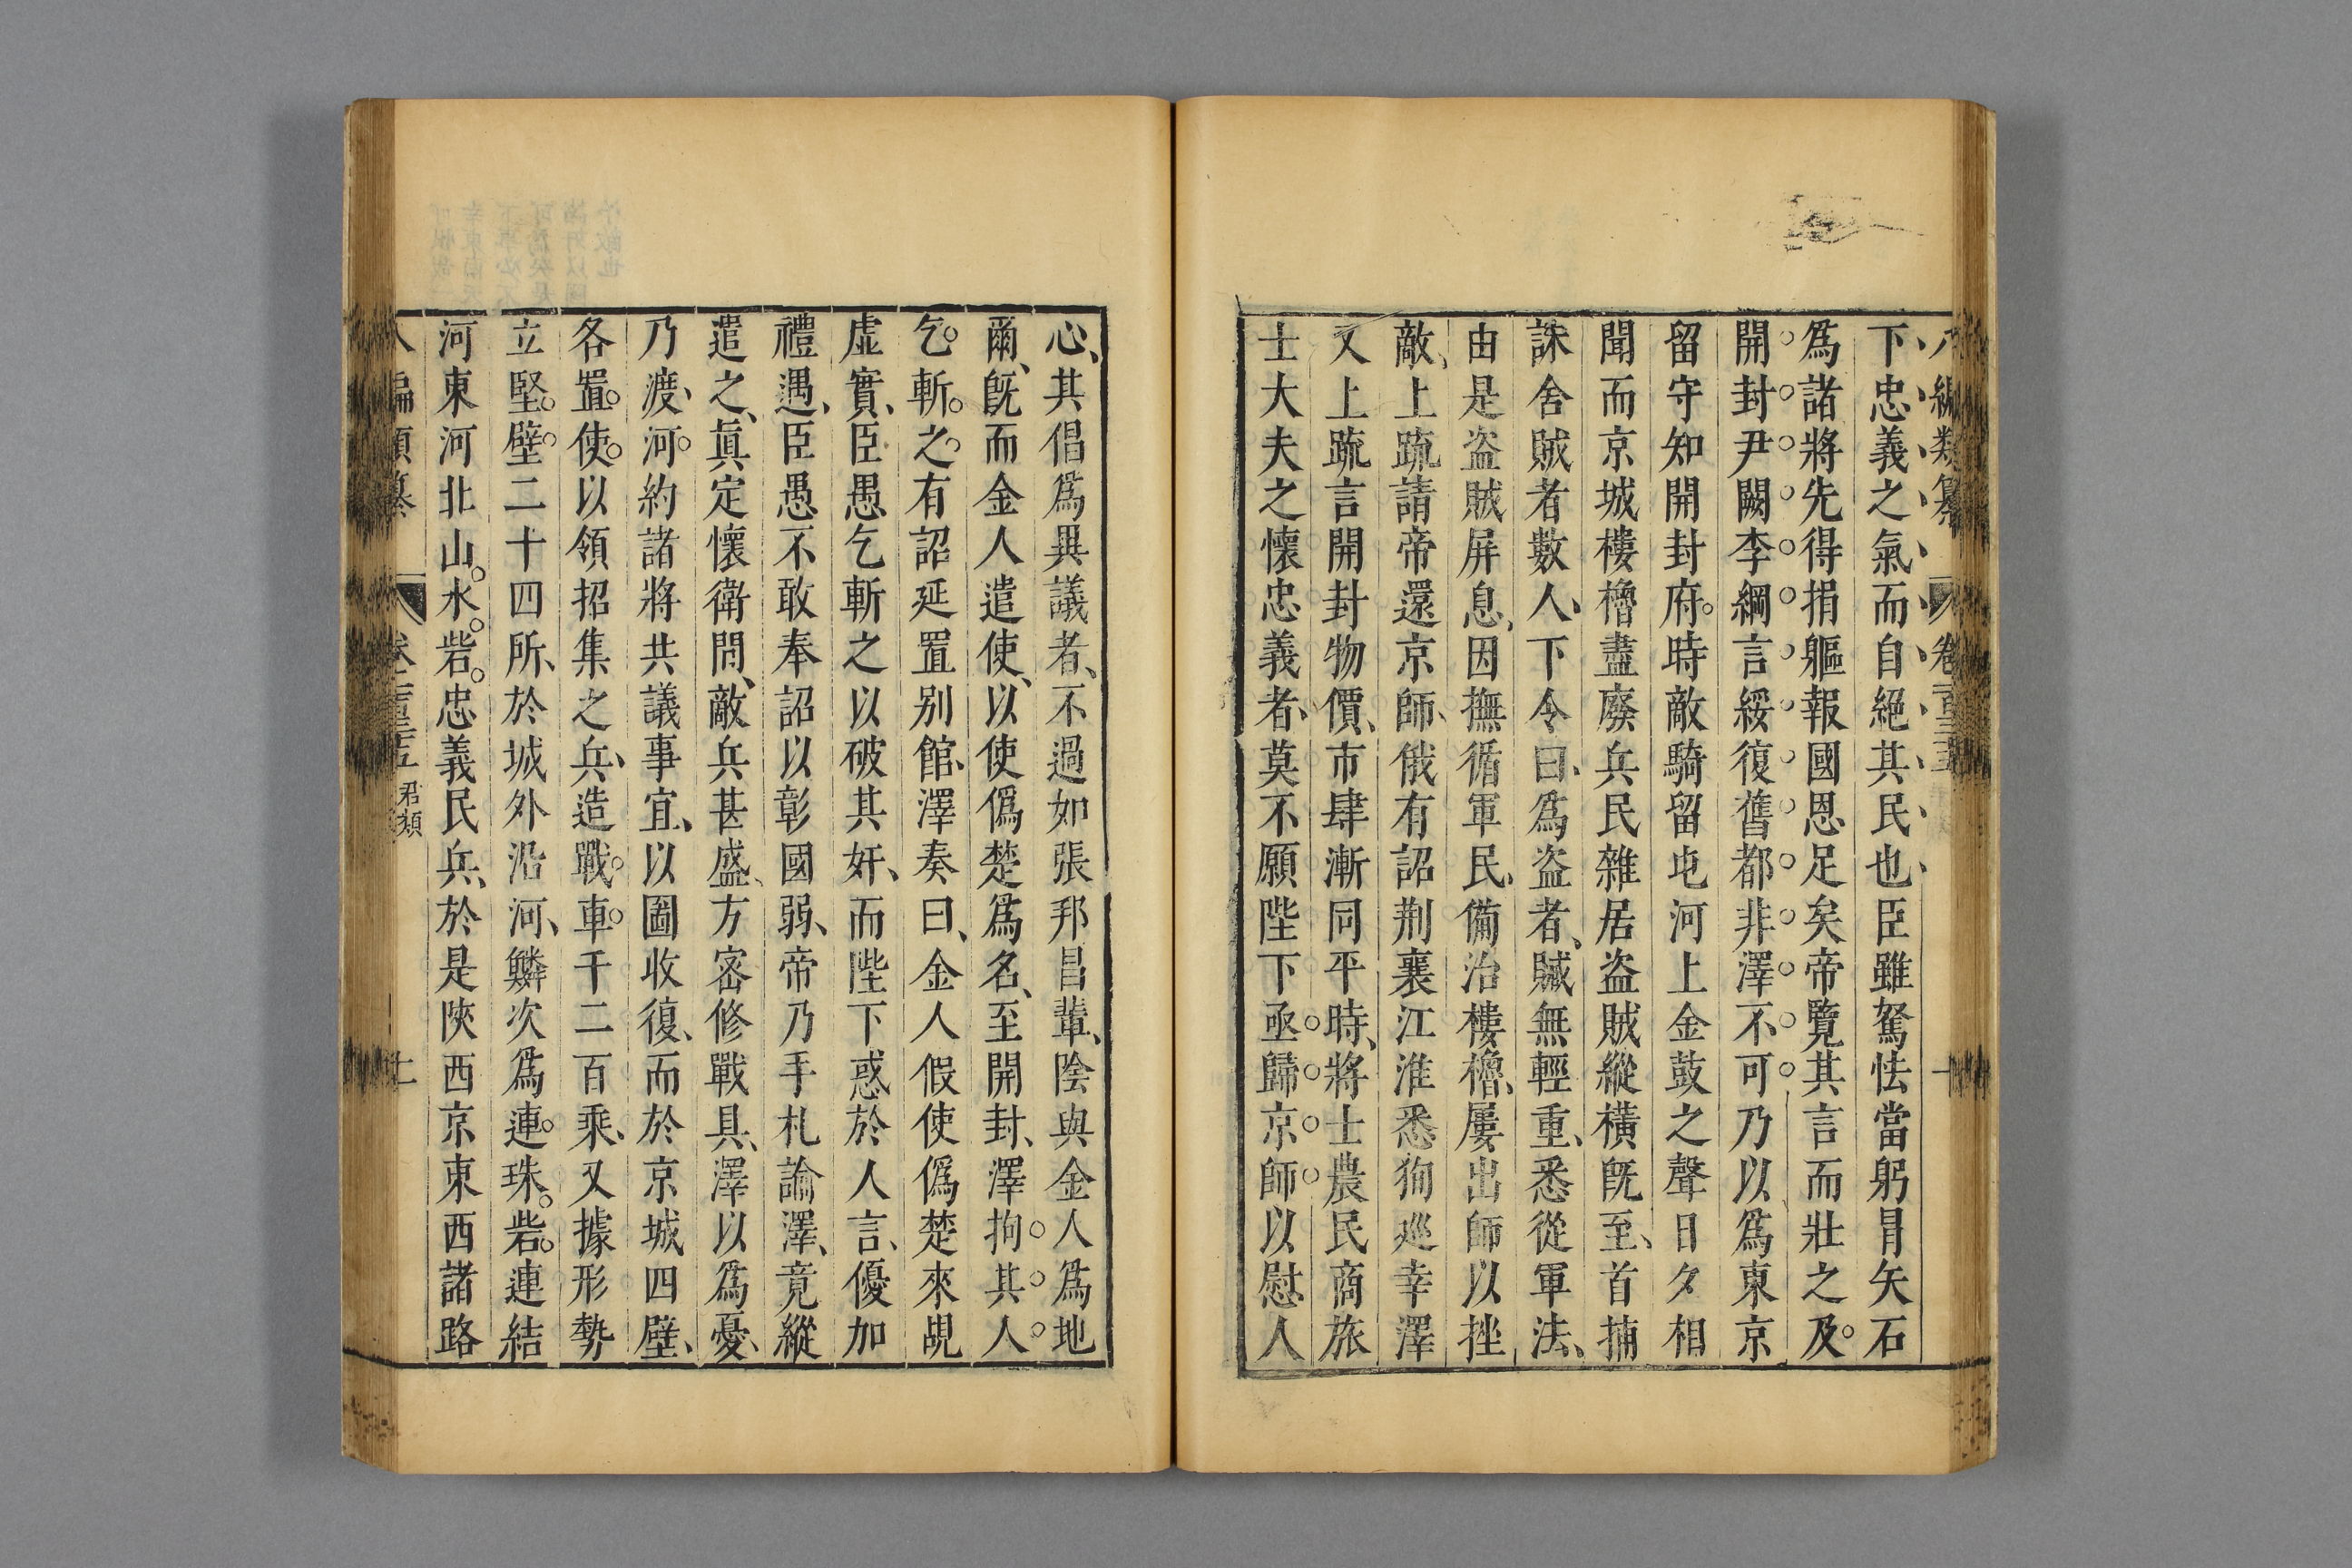 八編類纂 卷一百三十五
下忠義之氣而自絕其民也臣雖駑怯當躬冒矢石
爲諸將先得捐軀報國恩足矣帝覽其言而壯之及
開封尹闕李綱言綏復舊都非澤不可乃以爲東京
留守知開封府時敵騎留屯河上金鼓之聲日夕相
聞而京城樓櫓盡廢兵民雜居盜賊縱橫旣至首捕
誅舍賊者數人下令曰爲盜者贓無輕重悉從軍法
由是盜賊屏息因撫循軍民備治樓櫓屢出師以挫
敵上疏請帝還京師俄有詔荆襄江淮悉狥巡幸澤
又上疏言開封物價市肆漸同平時將士農民商旅
士大夫之懷忠義者莫不願陛下亟歸京師以慰人
心其倡爲異議者不過如張邦昌輩陰與金人爲地
爾旣而金人遣使以使僞楚爲名至開封澤拘其人
乞斬之有詔延置别館澤奏曰金人假使僞楚來覘
虛實臣愚乞斬之以破其奸而陛下惑於人言優加
禮遇臣愚不敢奉詔以彰國弱帝乃手札諭澤竟縱
遣之眞定懷衛間敵兵甚盛方密修戰具澤以爲憂
乃渡河約諸將共議事宜以圖收復而於京城四壁
各置使以領招集之兵造戰車千二百乘又據形勢
立堅壁二十四所於城外沿河鱗次爲連珠砦連結
河東河北山水砦忠義民兵於是陝西京東西諸路
八編類纂 卷一百三十五 君類 十一